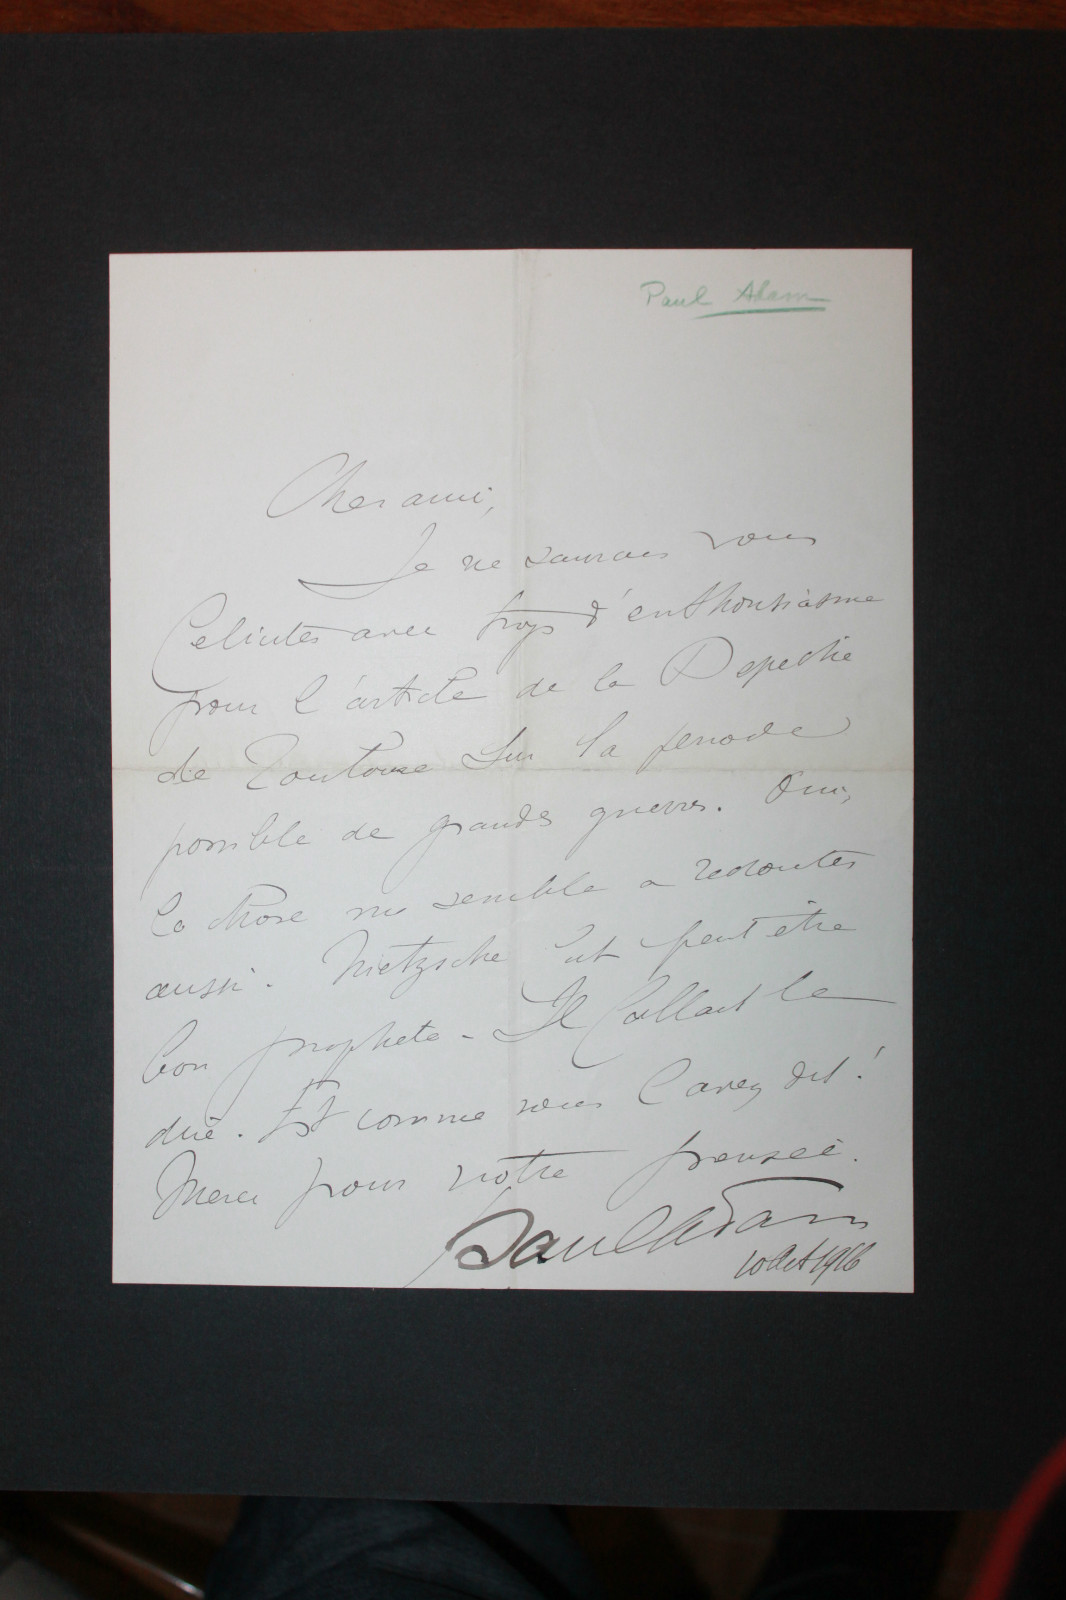 Paul Adam
Cher ami,
Je ne saurais vous
féliciter avec trop d'enthousiasme
pour l'article de la Depeche
de Toulouse sur la periode
possible de grandes guerres. Oui,
la chose me semble a redouter
aussi. Nietzsche fut peut être
bon prophete - Il fallait le
dire. Et comme vous l'avez dit!
Merci pour votre pensée.
Paul Adam
10 Oct 1916